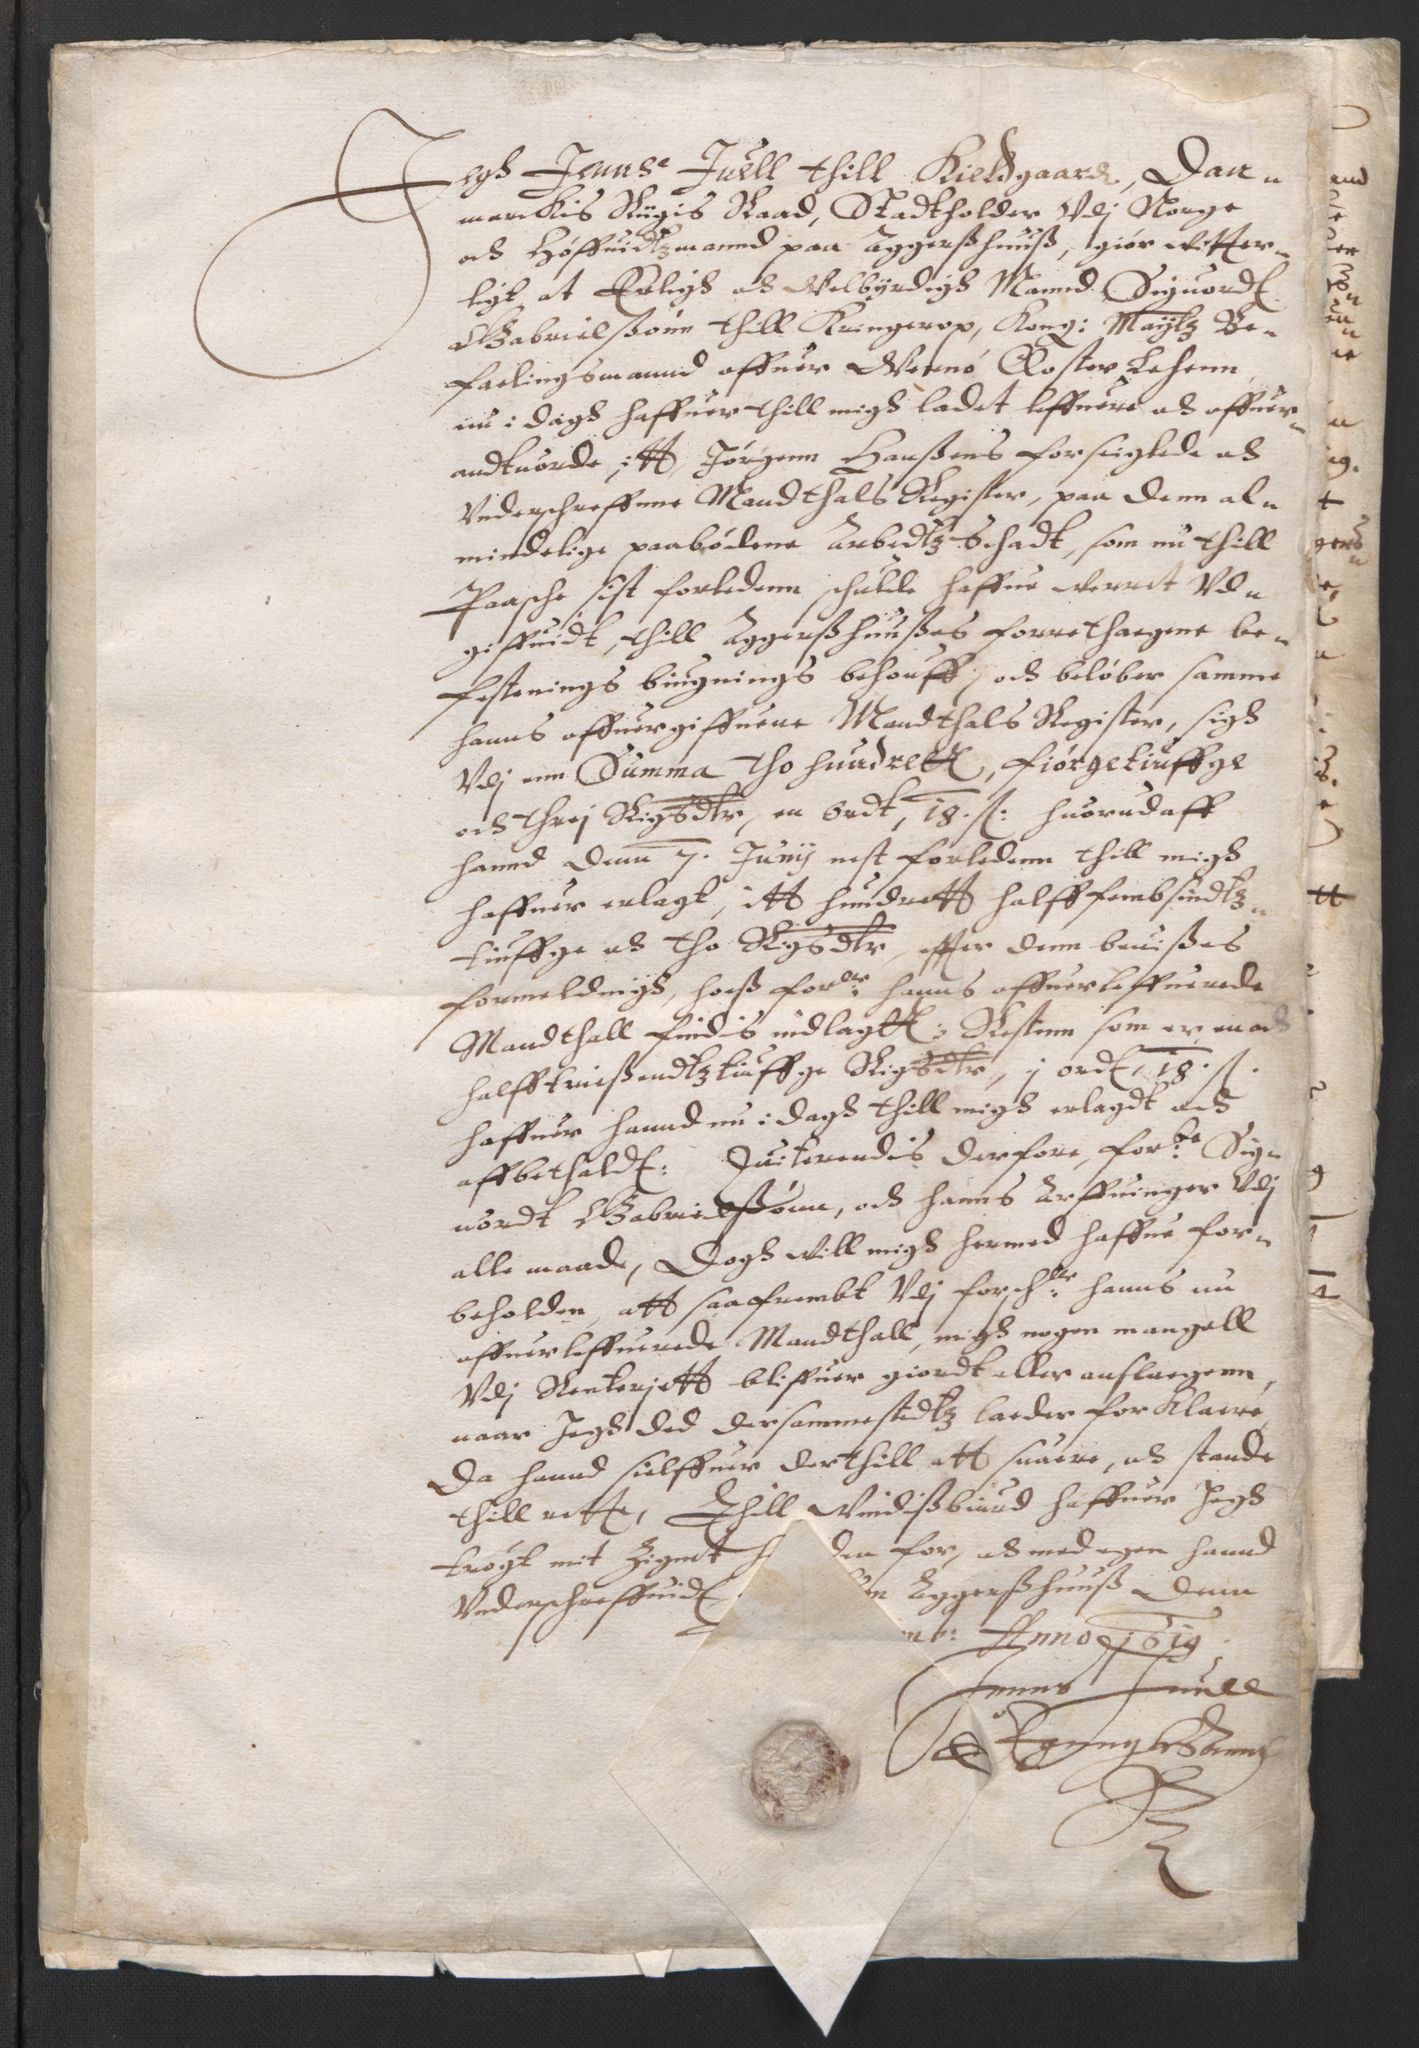 Jegh Jenns Juell thill Kieldgaard, Dan-
markis Riigis Raad, Stadtholder Vdj Norge
och Höffuidtzmannd paa Aggerßhuuß, giör witter-
ligt, at Erligh och Welbyrdigh Mannd Siguordt
Gabrielßönn thill Kringerop, Kong: Maÿtz Be-
faelingsmannd offuer Wernö Closter Lehenn,
nu i dagh haffuer thill migh ladet leffuere och offuer-
andtuorde, itt Jörgenn Hanßens forseiglede och
Vnderschreffuene Mandthals Register, paa denn al-
mindelige paabödene Arbedtz Schadt, som nu thill
Paasche sist forledenn schulde haffue werret Vd-
giffuidt, thill Aggerßhuußes forrethaegene be-
festenings biugnings behouff, och belöber samme
hanns offuergiffuene Mandthals Register, sigh
Vdj enn Summa tho hundrett, fiörgetiuffge
och threj Rigsdlr, en Ordt, 18. ß: huorudaff
hannd denn 7. Junij nest forledenn thill migh
haffuer erlagt, itt hundrett halfffembsindtz-
tiuffge och tho Rigsdlr, effter denn beuißes
formeldingh, hoeß for.de hanns offuerleffuerede
Mandthall findis indlagtt: Restenn som er en och
halfftrißendtztiuffge Rigsdlr, j ordt, 18. ß.
haffuer hannd nu i dagh thill migh erlagdt och
affbethaldt: Quiterendis derfore, for:ne Sig-
uordt Gabrielßönn, och hanns Arffuinger Vdj
alle maade, Dogh will migh hermed haffue for-
beholden, att saafrembt Vdj forsch:ne hanns nu
offuerleffuerede Mandthall, migh nogen mangell
Vdj Renteriett bliffuer giordt eller anslaegenn,
naar Jegh ded dersammestedtz lader forklaere,
Da hannd sielffuer derthill att suare, och stande
thill rette, Thill Windißbiurd haffuer Jegh
trögt mit Zignet for, och med egen hannd
Vnderschreffuidt Aggerßhuuß denn
Anno 1619
Jenns Juell
Egenn Hannd